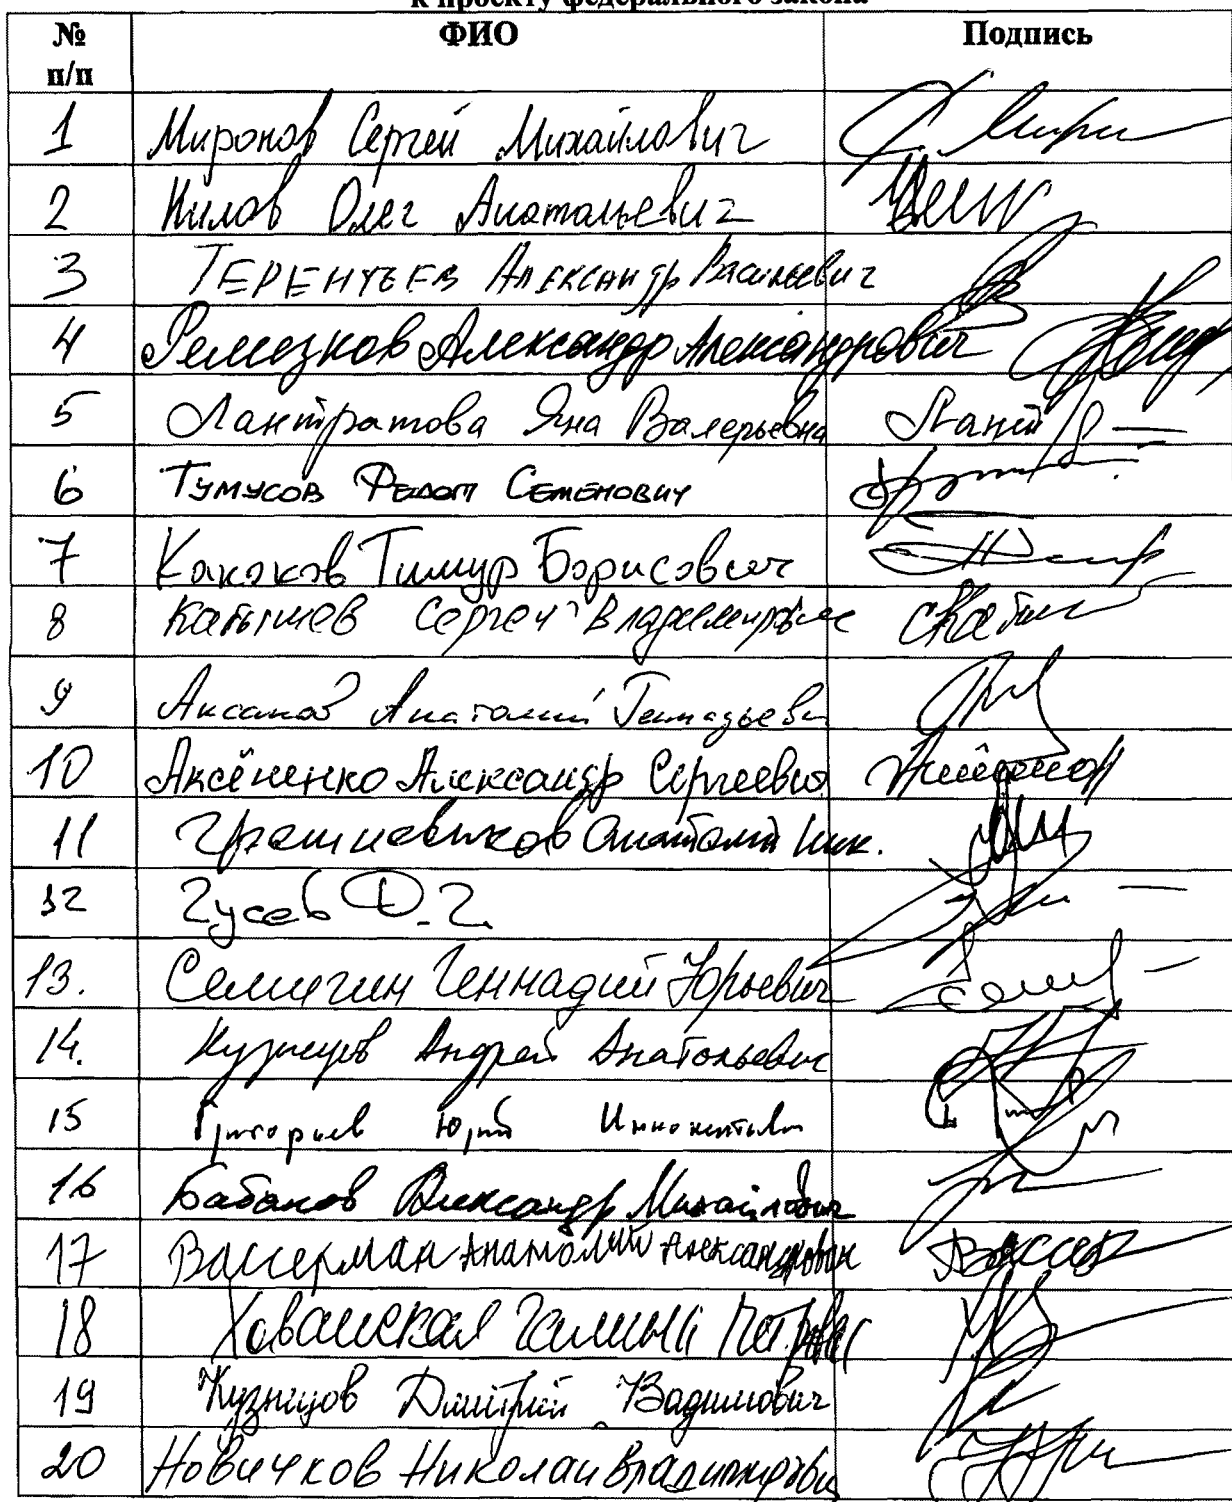 к проекту федерального закона
№ п/п ФИО Подпись
1 Миронов Сергей Михайлович
2 Нилов Олег Анатольевич
3 ТЕРЕНТЬЕВ Александр Васильевич
4 Ремезков Александр Александрович
5 Лантратова Яна Валерьевна
6 Тумусов Федот Семенович
7 Каноков Тимур Борисович
8 Кабышев Сергей Владимирович
9 Аксаков Анатолий Геннадьевич
10 Аксёненко Александр Сергеевич
11 Грешневиков Анатолий Ник.
12 Гусев Д.Г.
13. Семигин Геннадий Юрьевич
14. Кузнецов Андрей Анатольевич
15 Григорьев Юрий Иннокентьевич
16 Бабаков Александр Михайлович
17 Вассерман Анатолий Александрович
18 Хованская Галина Петровна
19 Кузнецов Дмитрий Вадимович
20 Новичков Николай Владимирович